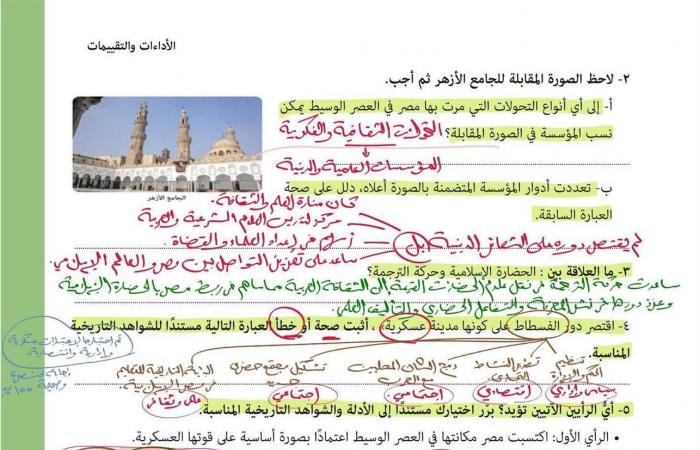 الأداءات والتقييمات
٢- لاحظ الصورة المقابلة للجامع الأزهر ثم أجب.
أ- إلى أي أنواع التحولات التي مرت بها مصر في العصر الوسيط يمكن
نسب المؤسسة في الصورة المقابلة؟ التحولات الثقافية والفكرية
المؤسسات العلمية والدينية
الجامع الأزهر
ب- تعددت أدوار المؤسسة المتضمنة بالصورة أعلاه، دلل على صحة
العبارة السابقة.
كان منارة للعلم والثقافة.
مركز لتدريس العلوم الشرعية والعربية
لم يقتصر دوره على الشعائر الدينية بل
أسهم في إعداد العلماء والقضاة
ساعد على تعزيز التواصل بين مصر والعالم الإسلامي.
٣- ما العلاقة بين : الحضارة الإسلامية وحركة الترجمة؟
ساعدت حركة الترجمة في نقل علوم الحضارات القديمة إلى الثقافة العربية مما ساهم في ربط مصر بالحضارة الإسلامية
وعزز دورها في نشر المعرفة والتفاعل الحضاري والتأليف العلمي.
٤- اقتصر دور الفسطاط على كونها مدينة عسكرية، أثبت صحة أو خطأ العبارة التالية مستندًا للشواهد التاريخية
المناسبة.
تنظيم
تشكيل مجتمع حضري
سياسي وإداري
اقتصادي
اجتماعي
اجتماعي
٥- أيُّ الرأيين الآتيين تؤيد؟ برّر اختيارك مستندًا إلى الأدلة والشواهد التاريخية المناسبة.
• الرأي الأول: اكتسبت مصر مكانتها في العصر الوسيط اعتمادًا بصورة أساسية على قوتها العسكرية.